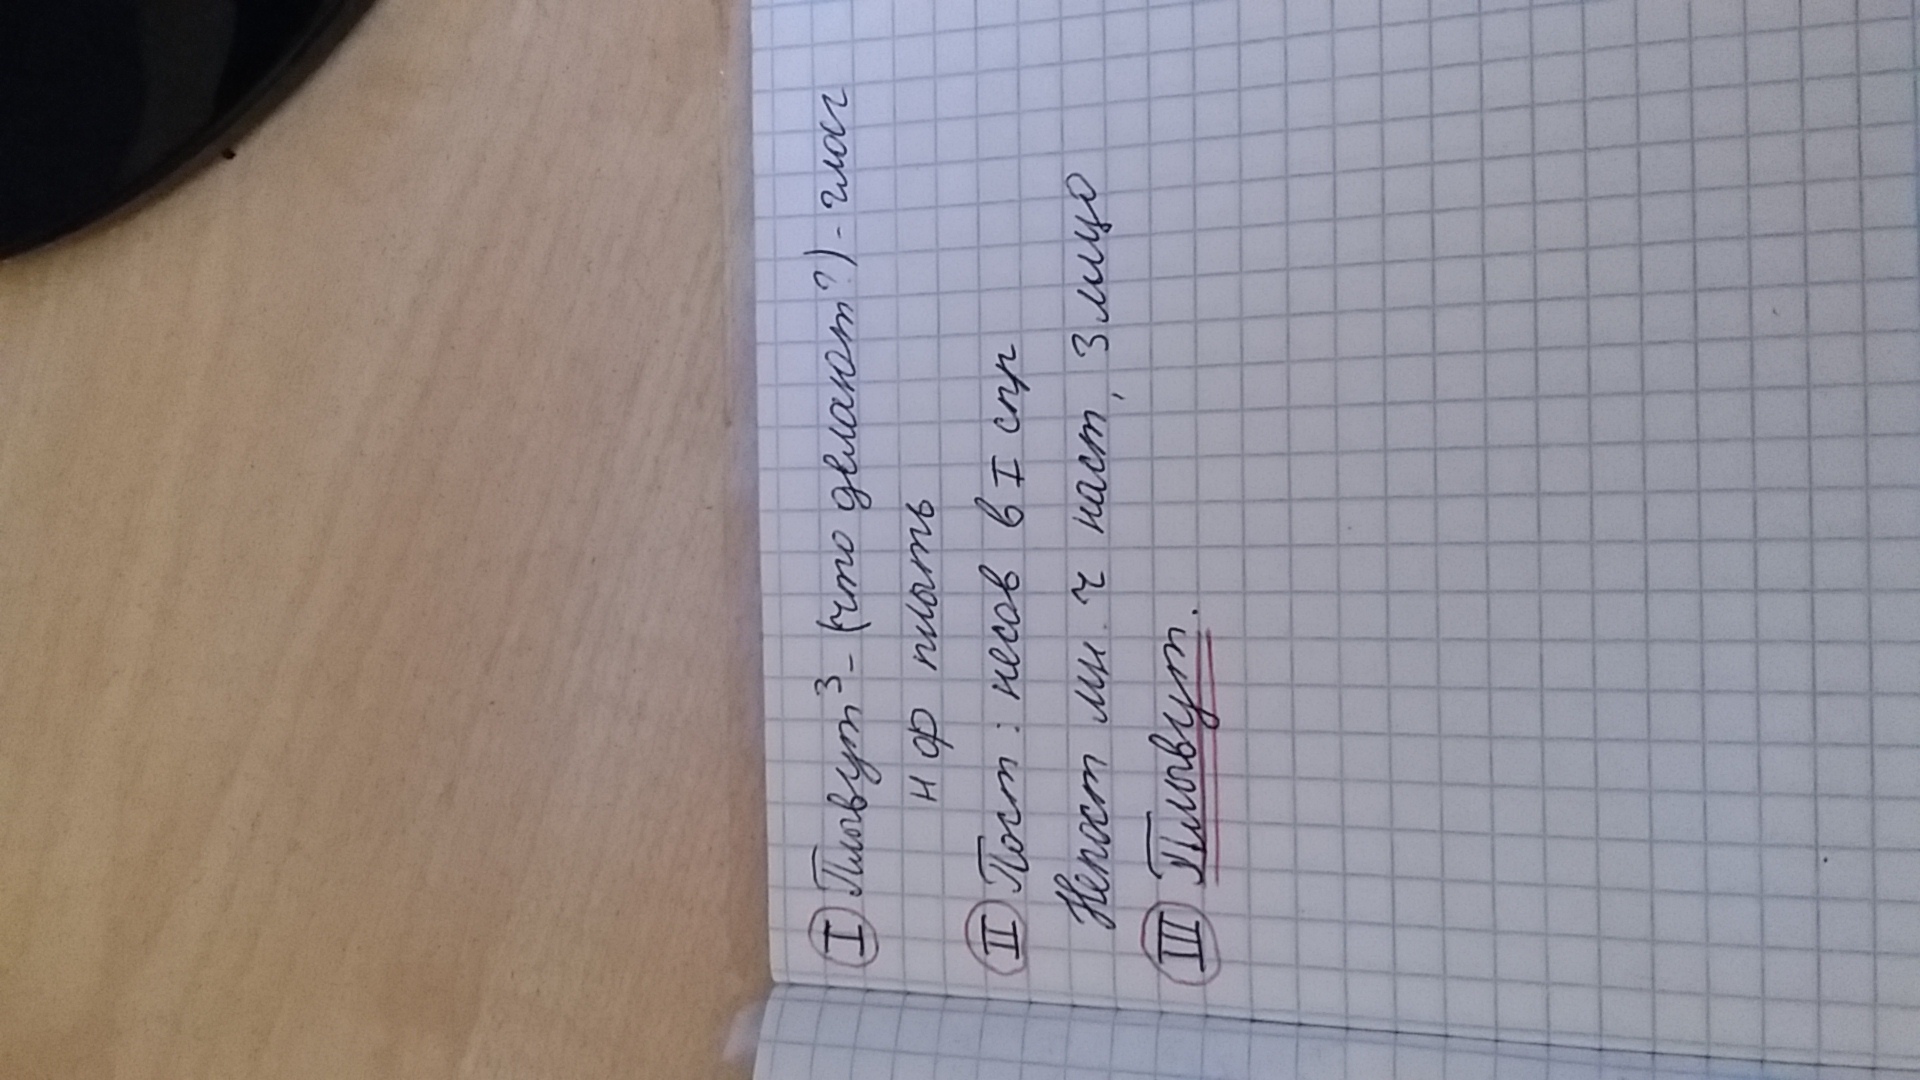 I Плывут³ - (что делают?) - глаг
н ф плыть
II Пост: несов в I спр
Непост мн. ч наст, 3 лицо
III Плывут.